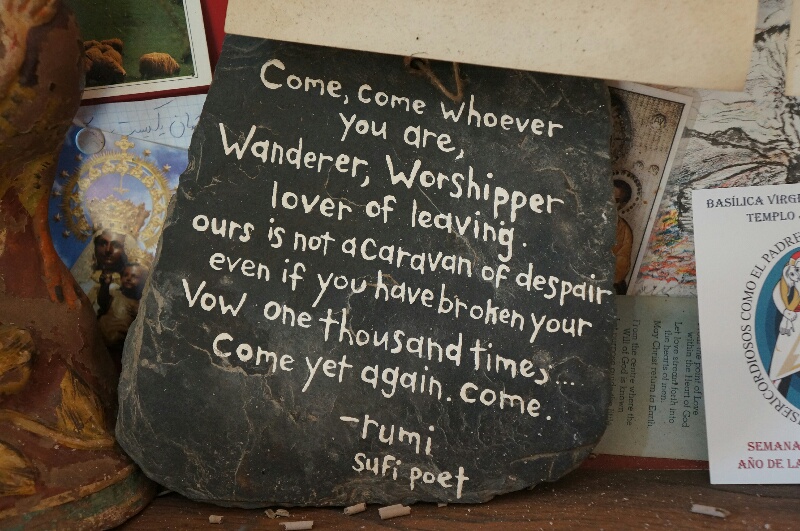 Come, come whoever
you are,
Wanderer, Worshipper
lover of leaving.
ours is not a caravan of despair
even if you have broken your
Vow one thousand times...
Come yet again. come.
-rumi
sufi poet
BASÍLICA
TEMPLO
MISERICORDIOSOS COMO EL PADRE
SEMANA
AÑO DE LA
point of Love
within the Heart of God
Let love stream forth into
the hearts of men.
May Christ return to Earth.
From the centre where the
Will of God is known